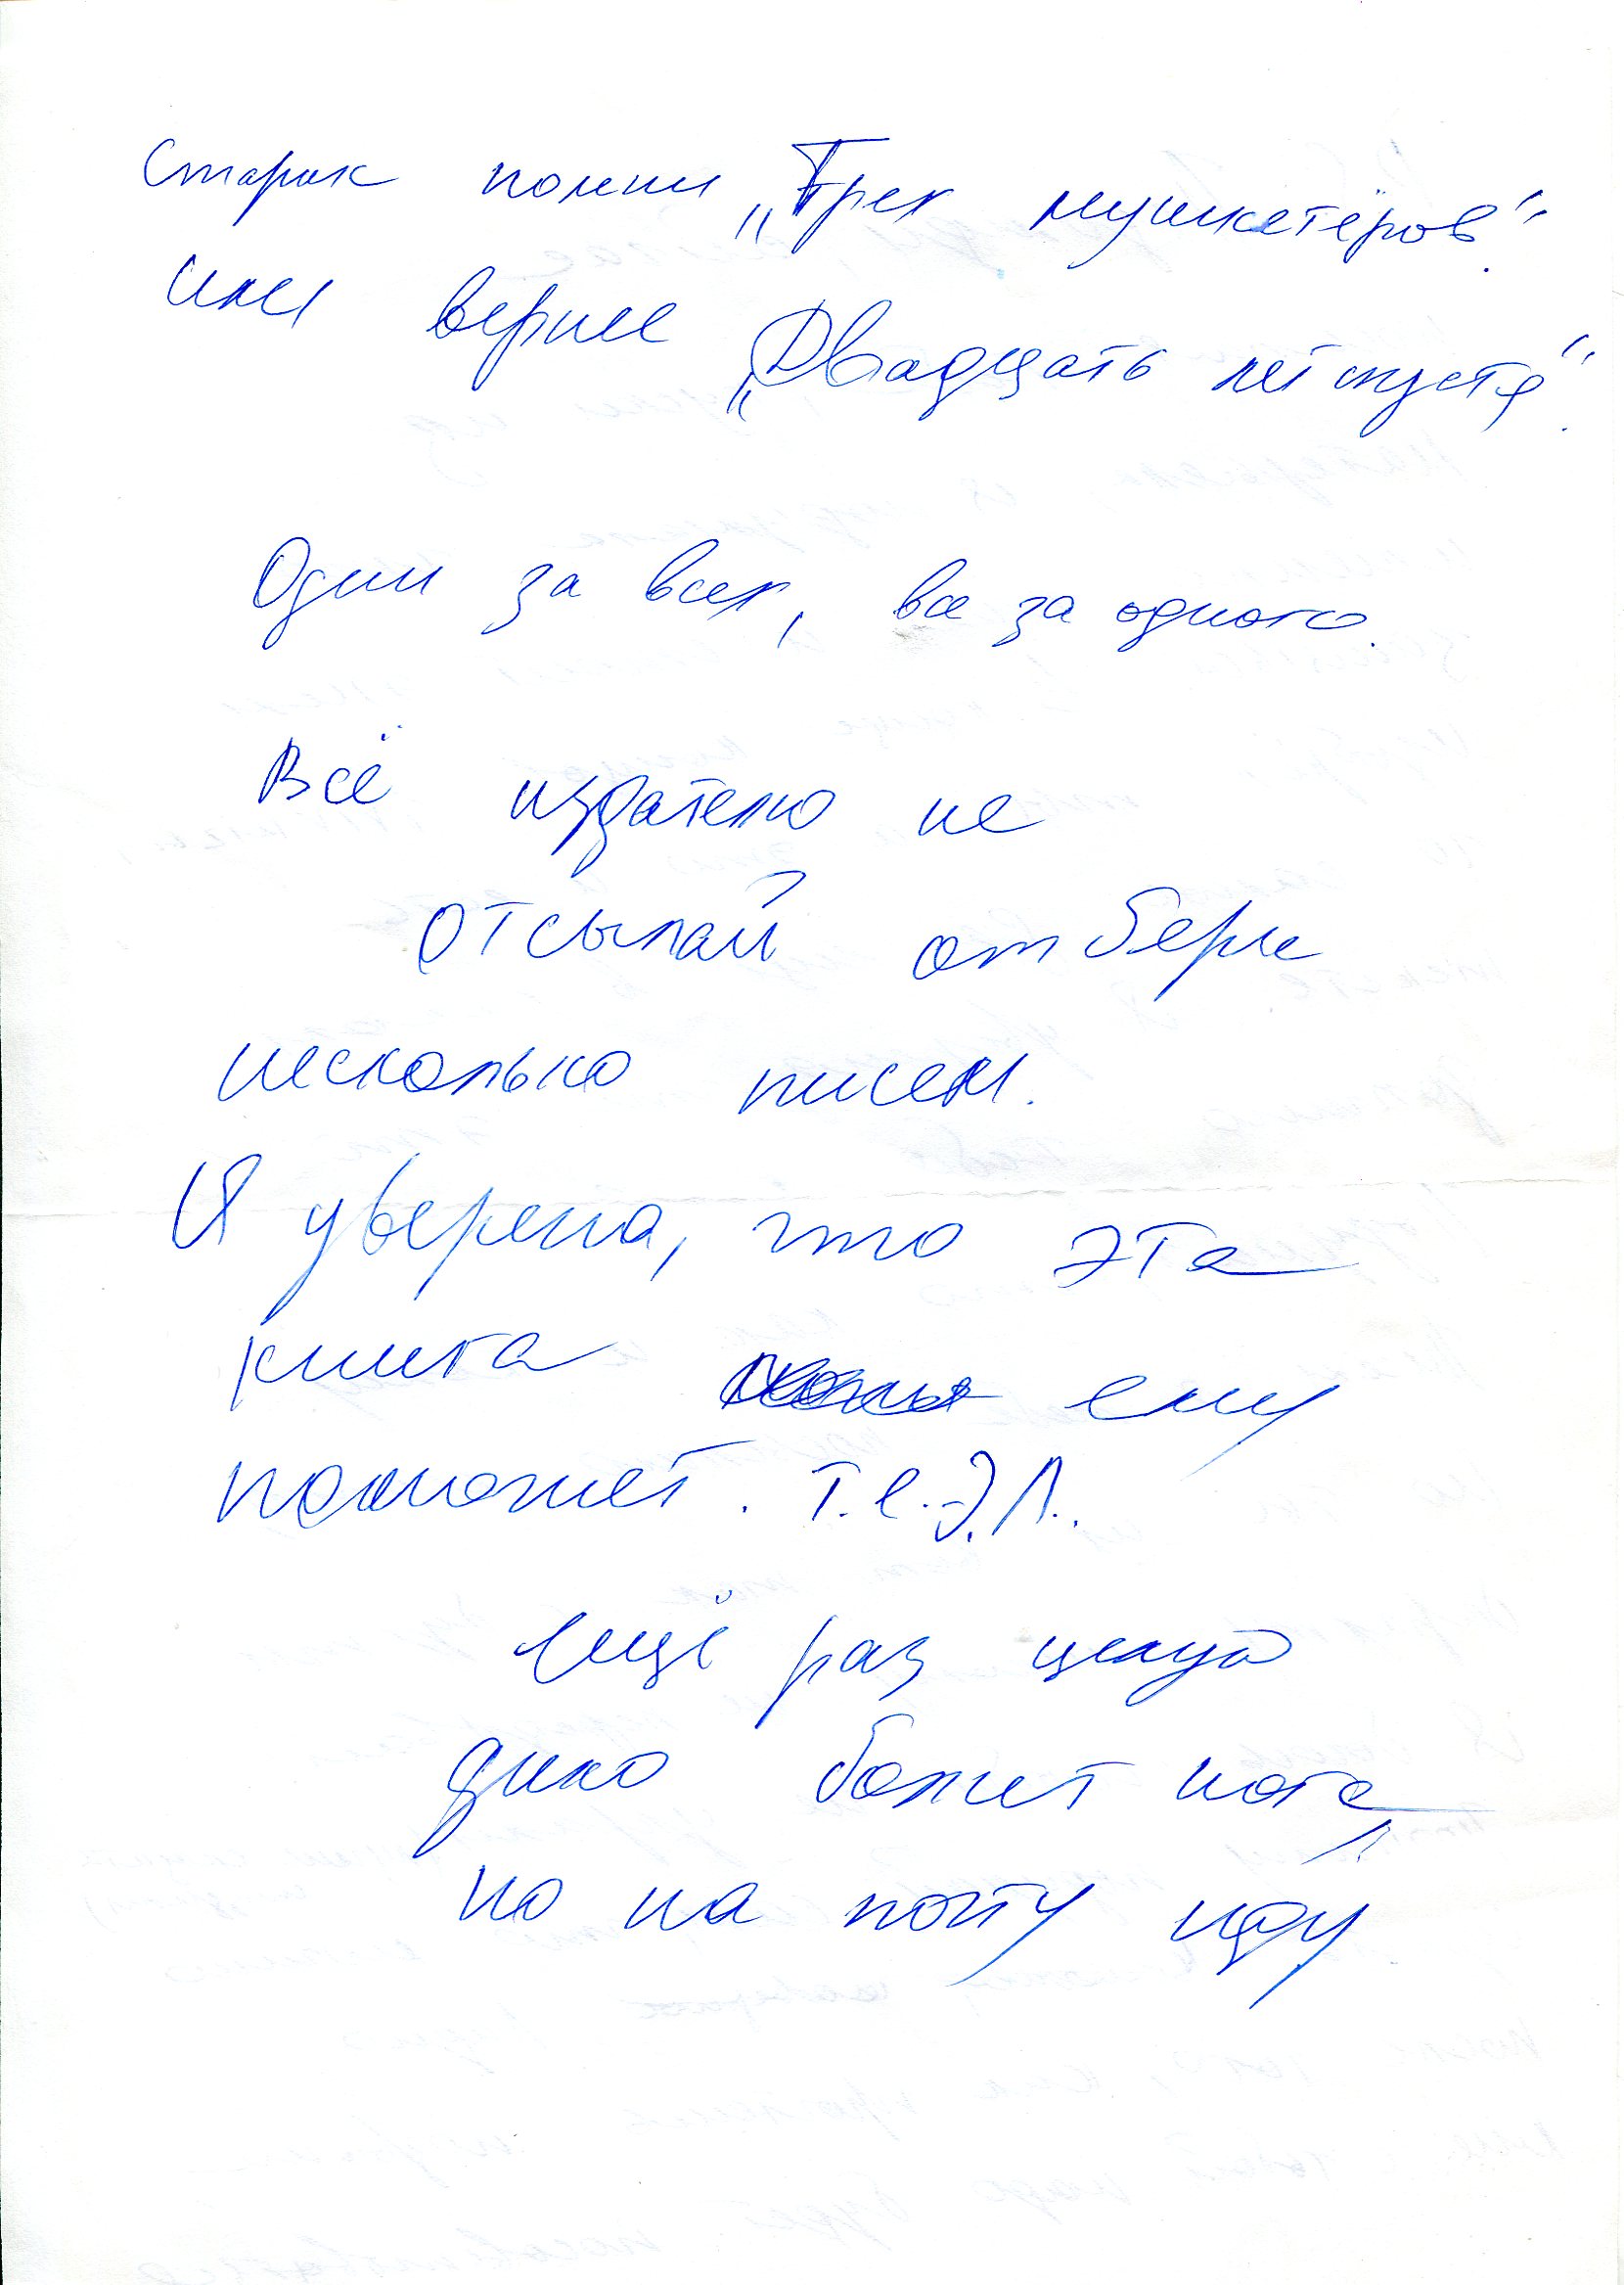 Старик помни „Трех мушкетёров“.
или вернее „Двадцать лет спустя“.
Один за всех, все за одного.
Всё издателю не
отсылай отбери
несколько писем.
Я уверена, что эта
книга ему
поможет. Т.е. Э.Л..
Ещё раз целую
дико болит нога,
но на почту иду